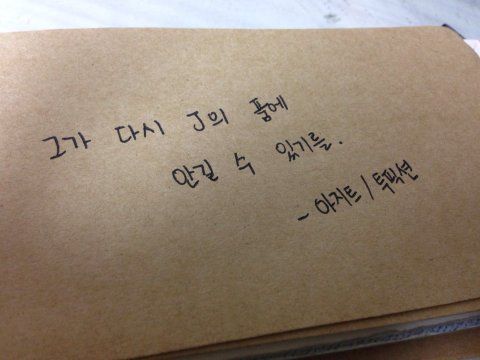 그가 다시 J의 품에
안길 수 있기를.
- 아지트 / 투픽션